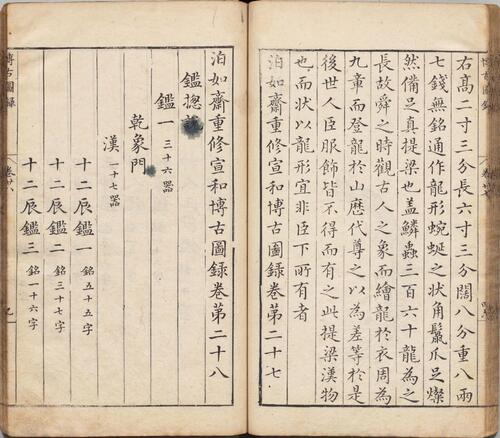 右高二寸三分長六寸三分闊八分重八兩
七錢無銘通作龍形蜿蜒之狀角鬣爪足燦
然備足真提梁也蓋鱗蟲三百六十龍為之
長故舜之時觀古人之象而繪龍於衣周為
九章而登龍於山歷代尊之以為差等於是
後世人臣服飾皆不得而有之此提梁漢物
也而狀以龍形宜非臣下所有者
泊如齋重修宣和博古圖録卷第二十七
泊如齋重修宣和博古圖録卷第二十八
鑑揔
鑑一 三十六器
乾象門
漢 一十七器
十二辰鑑一 銘五十五字
十二辰鑑二 銘三十七字
十二辰鑑三 銘一十六字
博古圖録 卷廿八